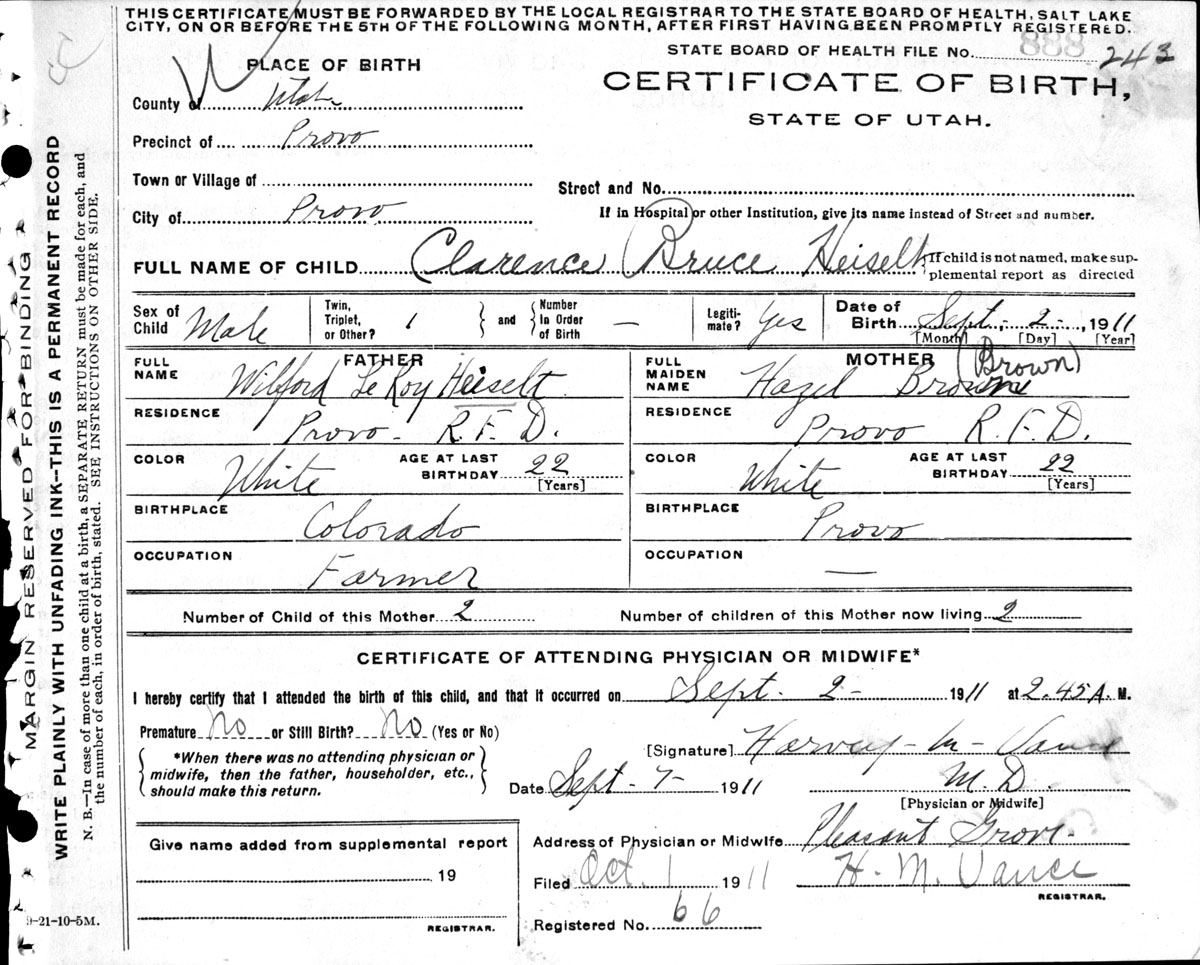 THIS CERTIFICATE MUST BE FORWARDED BY THE LOCAL REGISTRAR TO THE STATE BOARD OF HEALTH, SALT LAKE
CITY, ON OR BEFORE THE 5TH OF THE FOLLOWING MONTH, AFTER FIRST HAVING BEEN PROMPTLY REGISTERED.
STATE BOARD OF HEALTH FILE No. 888 243
PLACE OF BIRTH
CERTIFICATE OF BIRTH,
STATE OF UTAH.
County of Utah
Precinct of Provo
Town or Village of
Street and No.
City of Provo
If in Hospital or other Institution, give its name instead of Street and number.
FULL NAME OF CHILD Clarence Bruce Heiselt
{If child is not named, make sup-
plemental report as directed
Sex of Child Male
Twin, Triplet, or Other? 1
} and { Number In Order of Birth —
Legiti-mate? Yes
Date of Birth Sept. 2 1911
[Month] [Day] [Year]
FATHER
FULL NAME Wilford Le Roy Heiselt
RESIDENCE Provo - R. F. D.
COLOR White
AGE AT LAST BIRTHDAY 22
[Years]
BIRTHPLACE Colorado
OCCUPATION Farmer
MOTHER (Brown)
FULL MAIDEN NAME Hazel Browne
RESIDENCE Provo R. F. D.
COLOR White
AGE AT LAST BIRTHDAY 22
[Years]
BIRTHPLACE Provo
OCCUPATION —
Number of Child of this Mother 2
Number of children of this Mother now living 2
CERTIFICATE OF ATTENDING PHYSICIAN OR MIDWIFE*
I hereby certify that I attended the birth of this child, and that it occurred on Sept. 2 - 1911 at 2.45 A. M.
Premature No or Still Birth? No (Yes or No)
*When there was no attending physician or
midwife, then the father, householder, etc.,
should make this return.
[Signature] Harvey - M - Vance
Date Sept - 7 - 1911
M. D.
[Physician or Midwife]
Address of Physician or Midwife Pleasant Grove
Filed Oct. 1 1911
H. M. Vance
REGISTRAR.
Registered No. 66
Give name added from supplemental report
19
REGISTRAR.
9-21-10-5M.
MARGIN RESERVED FOR BINDING
WRITE PLAINLY WITH UNFADING INK--THIS IS A PERMANENT RECORD
N. B.—In case of more than one child at a birth, a SEPARATE RETURN must be made for each, and
the number of each, in order of birth, stated. SEE INSTRUCTIONS ON OTHER SIDE.